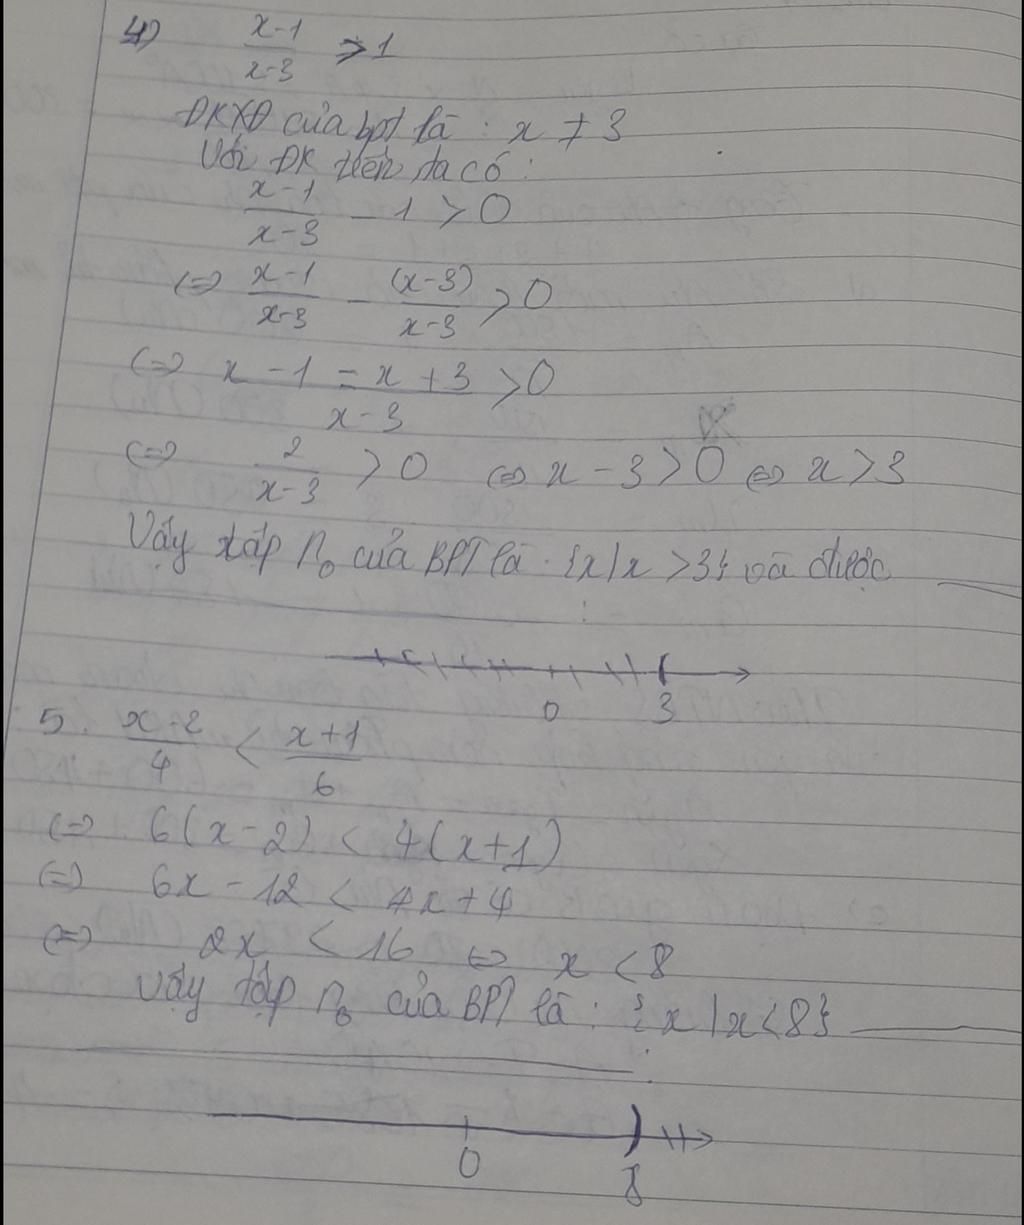 4) \frac{x-1}{x-3} > 1
ĐKXĐ của bpt là : x ≠ 3
Với ĐK trên ta có :
\frac{x-1}{x-3} - 1 > 0
⇔ \frac{x-1}{x-3} - \frac{(x-3)}{x-3} > 0
⇔ \frac{x - 1 - x + 3}{x-3} > 0
⇔ \frac{2}{x-3} > 0 ⇔ x - 3 > 0 ⇔ x > 3
Vậy tập n₀ của BPT là : {x | x > 3} và được
0 3
5. \frac{x-2}{4} < \frac{x+1}{6}
⇔ 6(x-2) < 4(x+1)
⇔ 6x - 12 < 4x + 4
⇔ 2x < 16 ⇔ x < 8
Vậy tập n₀ của BPT là : {x | x < 8}
0 8